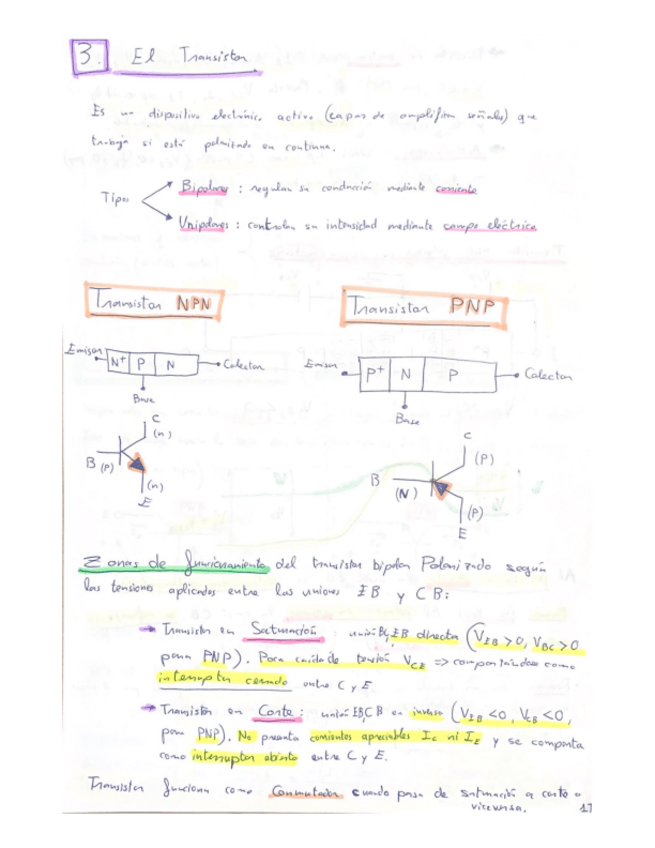 3. El Transistor
Es un dispositivo electrónico activo (capaz de amplificar señales) que
trabaja si está polarizado en continua.
Tipos
Bipolares : regulan su conducción mediante corriente
Unipolares : controlan su intensidad mediante campo eléctrico
Transistor NPN
Transistor PNP
Emisor N+ P N Colector
Base
Emisor P+ N P Colector
Base
C
(n)
B (P)
(n)
E
C
(P)
B
(N)
(P)
E
Zonas de funcionamiento del transistor bipolar Polarizado según
las tensiones aplicadas entre las uniones EB y CB:
Transistor en Saturación : unión BC, EB directa (V_EB > 0, V_BC > 0
para PNP). Poca caída de tensión V_CE => comportándose como
interruptor cerrado entre C y E
Transistor en Corte : unión EB, CB en inversa (V_EB < 0, V_CB < 0,
para PNP). No presenta corrientes apreciables I_C ni I_E y se comporta
como interruptor abierto entre C y E.
Transistor funciona como Conmutador cuando pasa de saturación a corte o
viceversa.
17